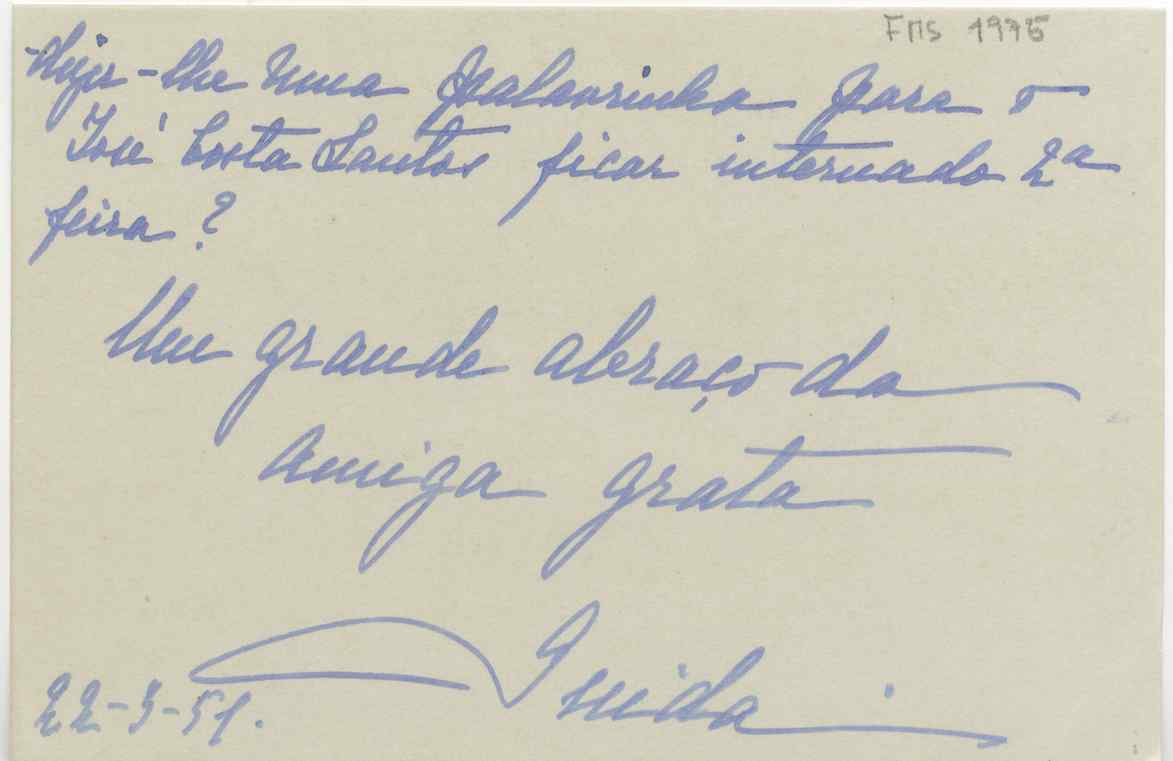 FMS 1975
-diga-lhe uma palavrinha para o
José Costa Santos ficar internado 2ª
feira?
Um grande abraço da
amiga grata
Guida
22-3-51.